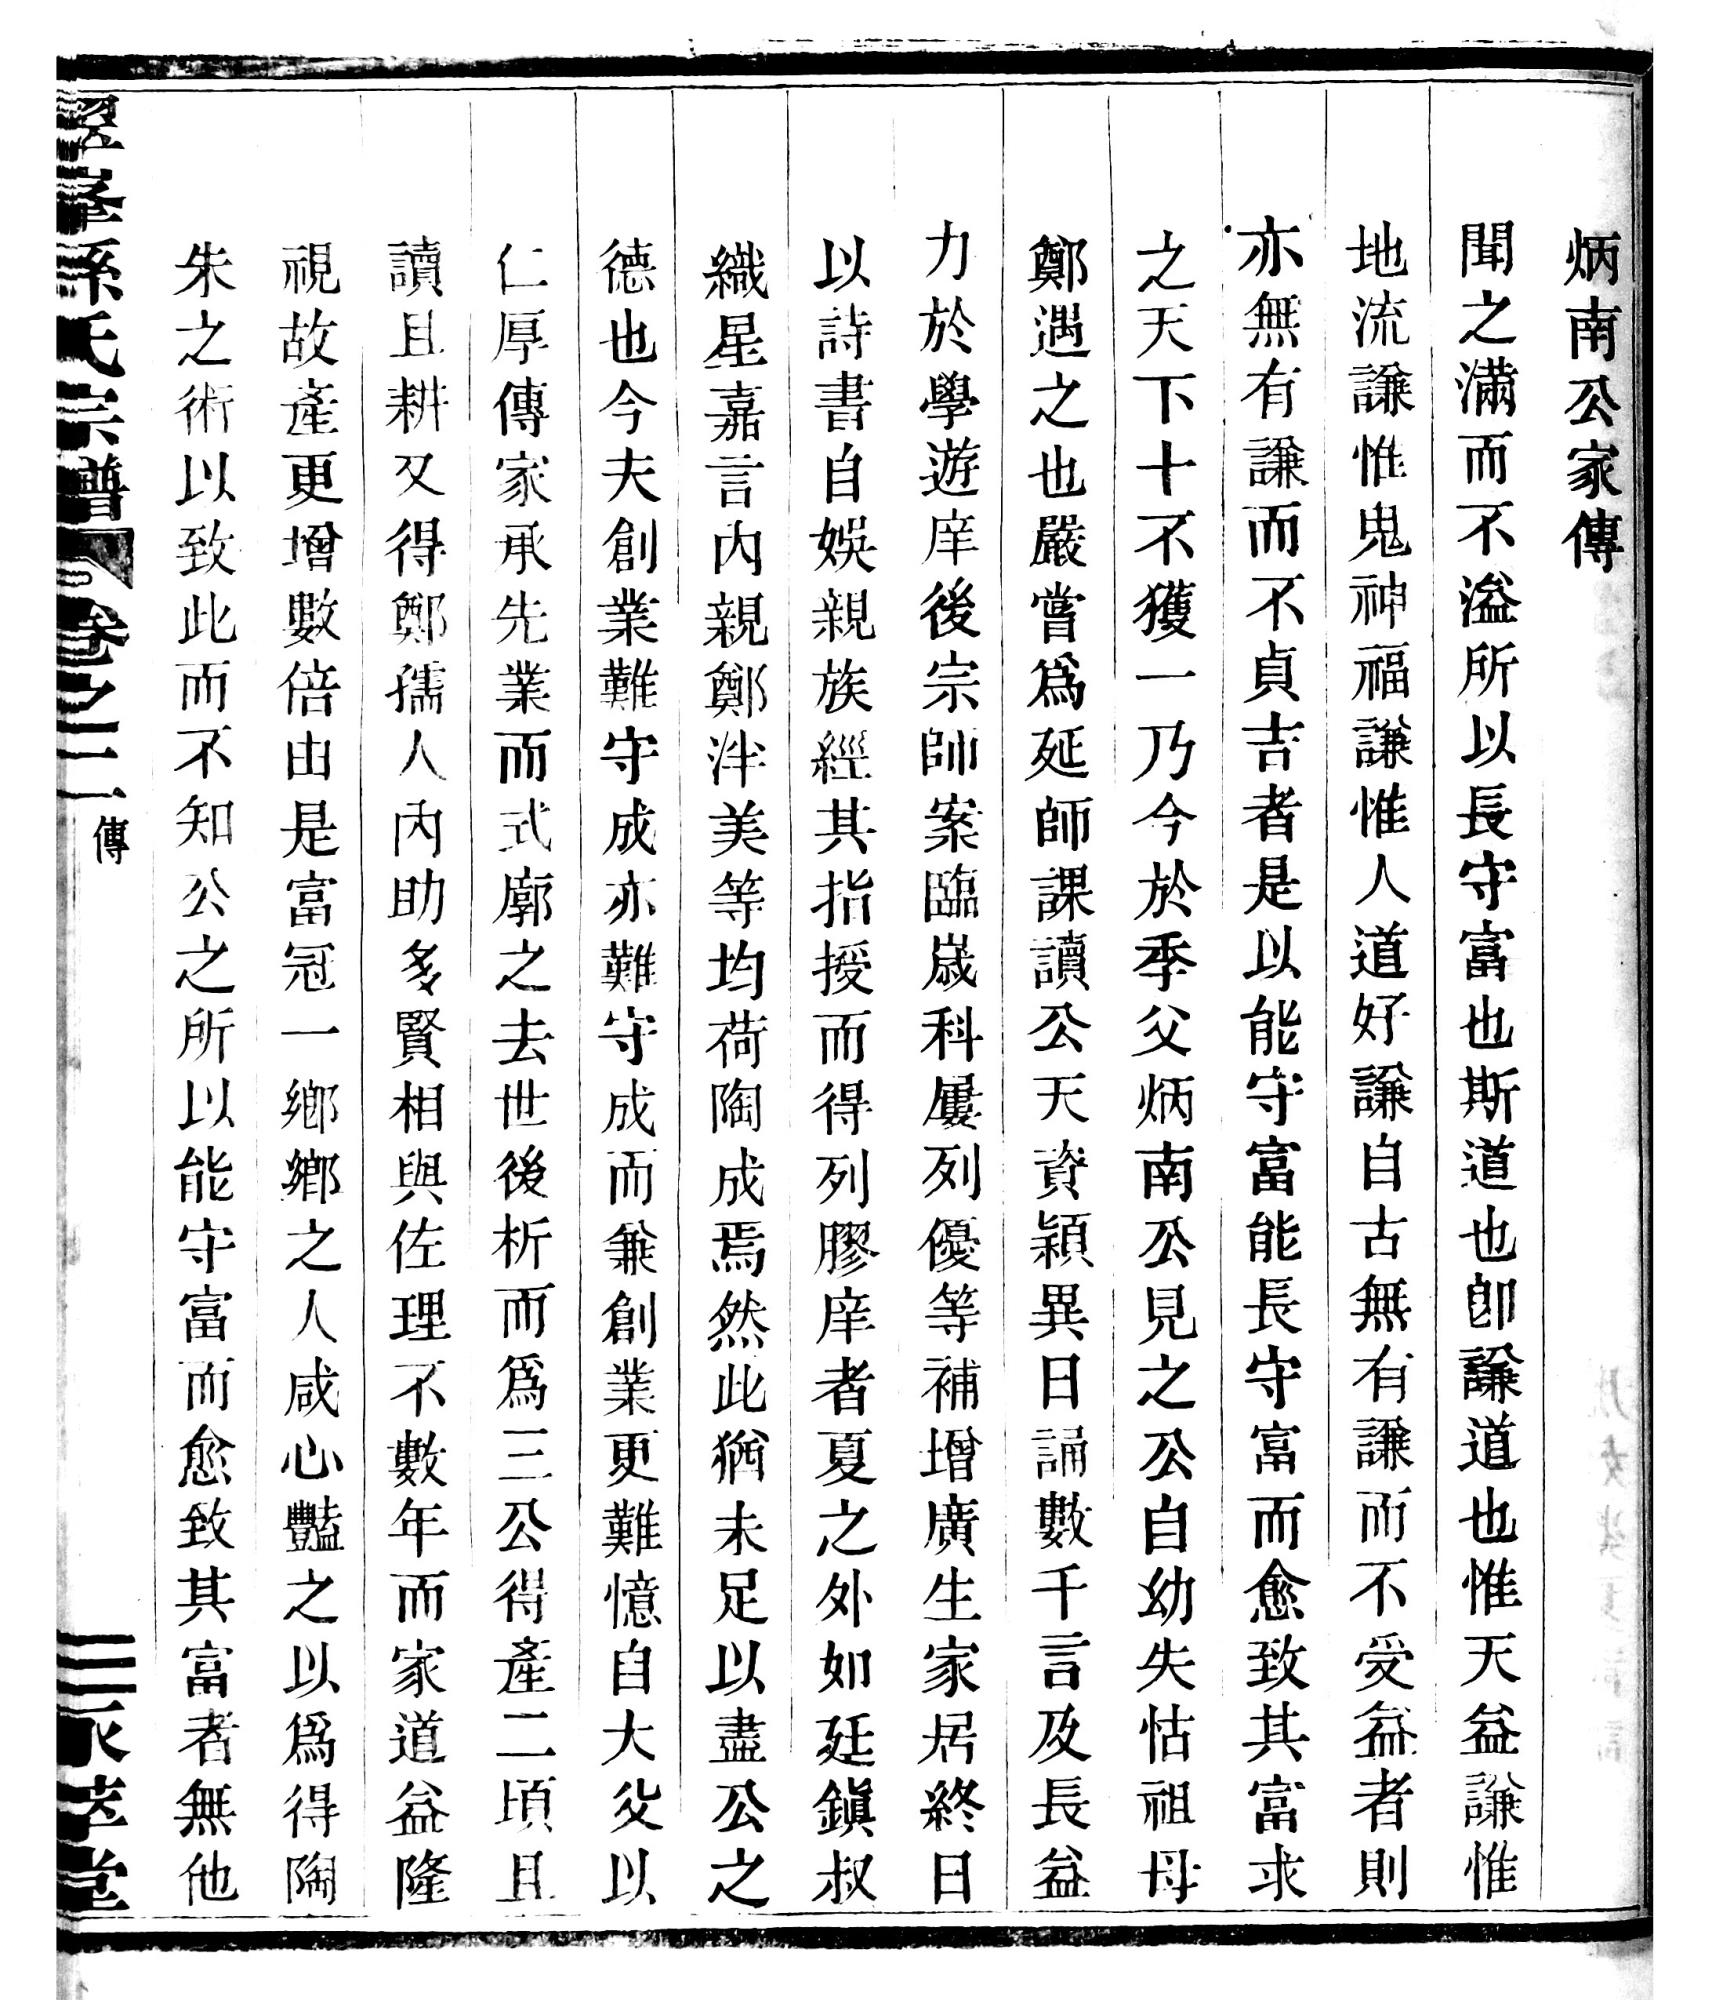 炳南公家傳
聞之滿而不溢所以長守富也斯道也卽謙道也惟天益謙惟
地流謙惟鬼神福謙惟人道好謙自古無有謙而不受益者則
亦無有謙而不貞吉者是以能守富能長守富而愈致其富求
之天下十不獲一乃今於季父炳南公見之公自幼失怙祖母
鄭遇之也嚴嘗爲延師課讀公天資穎異日誦數千言及長益
力於學遊庠後宗師案臨歲科屢列優等補增廣生家居終日
以詩書自娛親族經其指授而得列膠庠者夏之外如廷鎭叔
織星嘉言內親鄭泮美等均荷陶成焉然此猶未足以盡公之
德也今夫創業難守成亦難守成而兼創業更難憶自大父以
仁厚傳家承先業而式廓之去世後析而爲三公得產二頃且
讀且耕又得鄭孺人內助多賢相與佐理不數年而家道益隆
視故產更增數倍由是富冠一鄉鄉之人咸心豔之以爲得陶
朱之術以致此而不知公之所以能守富而愈致其富者無他
孫氏宗譜 卷之二 傳